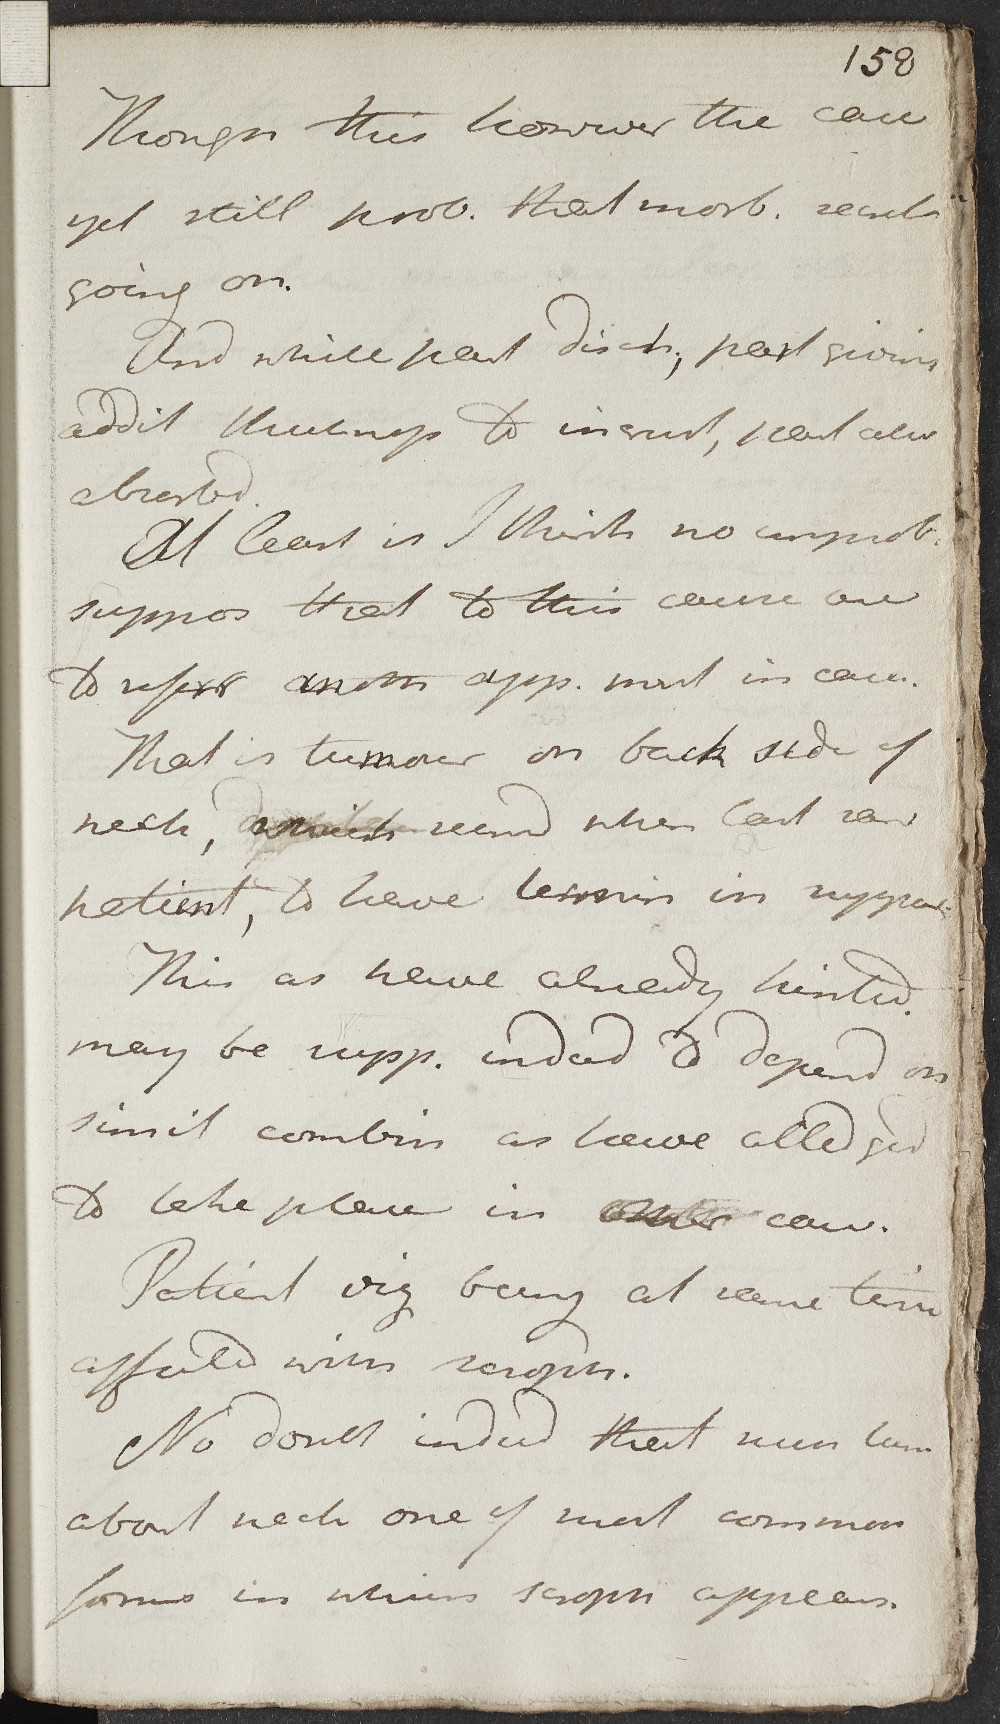 158
Though this however the case
yet still prob. that morb. secret
going on.
And while part disch, part giving
addit thicknes to incrust, part also
absorbed.
At least is I think no improb.
suppos that to this cause are
to refer anoth app. most in case.
That is tumour on back side of
neck, which seemd when last saw
patient, to have termin in suppurat.
This as have already hinted.
may be supp. indeed to depend on
simil combin as have alledged
to take place in other case.
Patient viz being at same time
affected with scroph.
No doubt indeed that such tum
about neck one of most common
forms in which scroph appears.